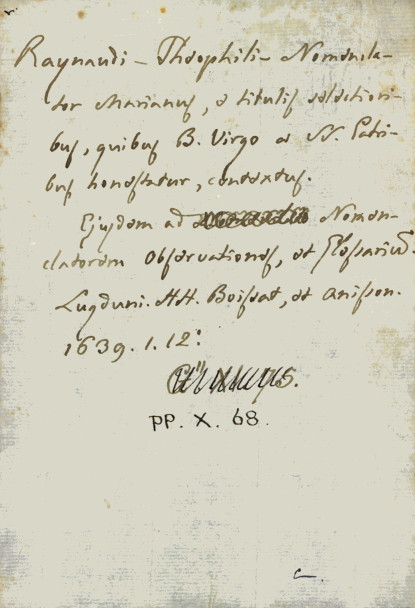 Raynaudi - Theophili - Nomencla-
tor Marianus, e titulis selectiori-
bus, quibus B. Virgo a SS. Patri-
bus honestatur, contextus.
Ejusdem ad Nomen-
clatorem observationes, et Glossariũ.
Lugduni. HH. Boissat, et Anisson.
1639. 1. 12:
PP. X. 68.